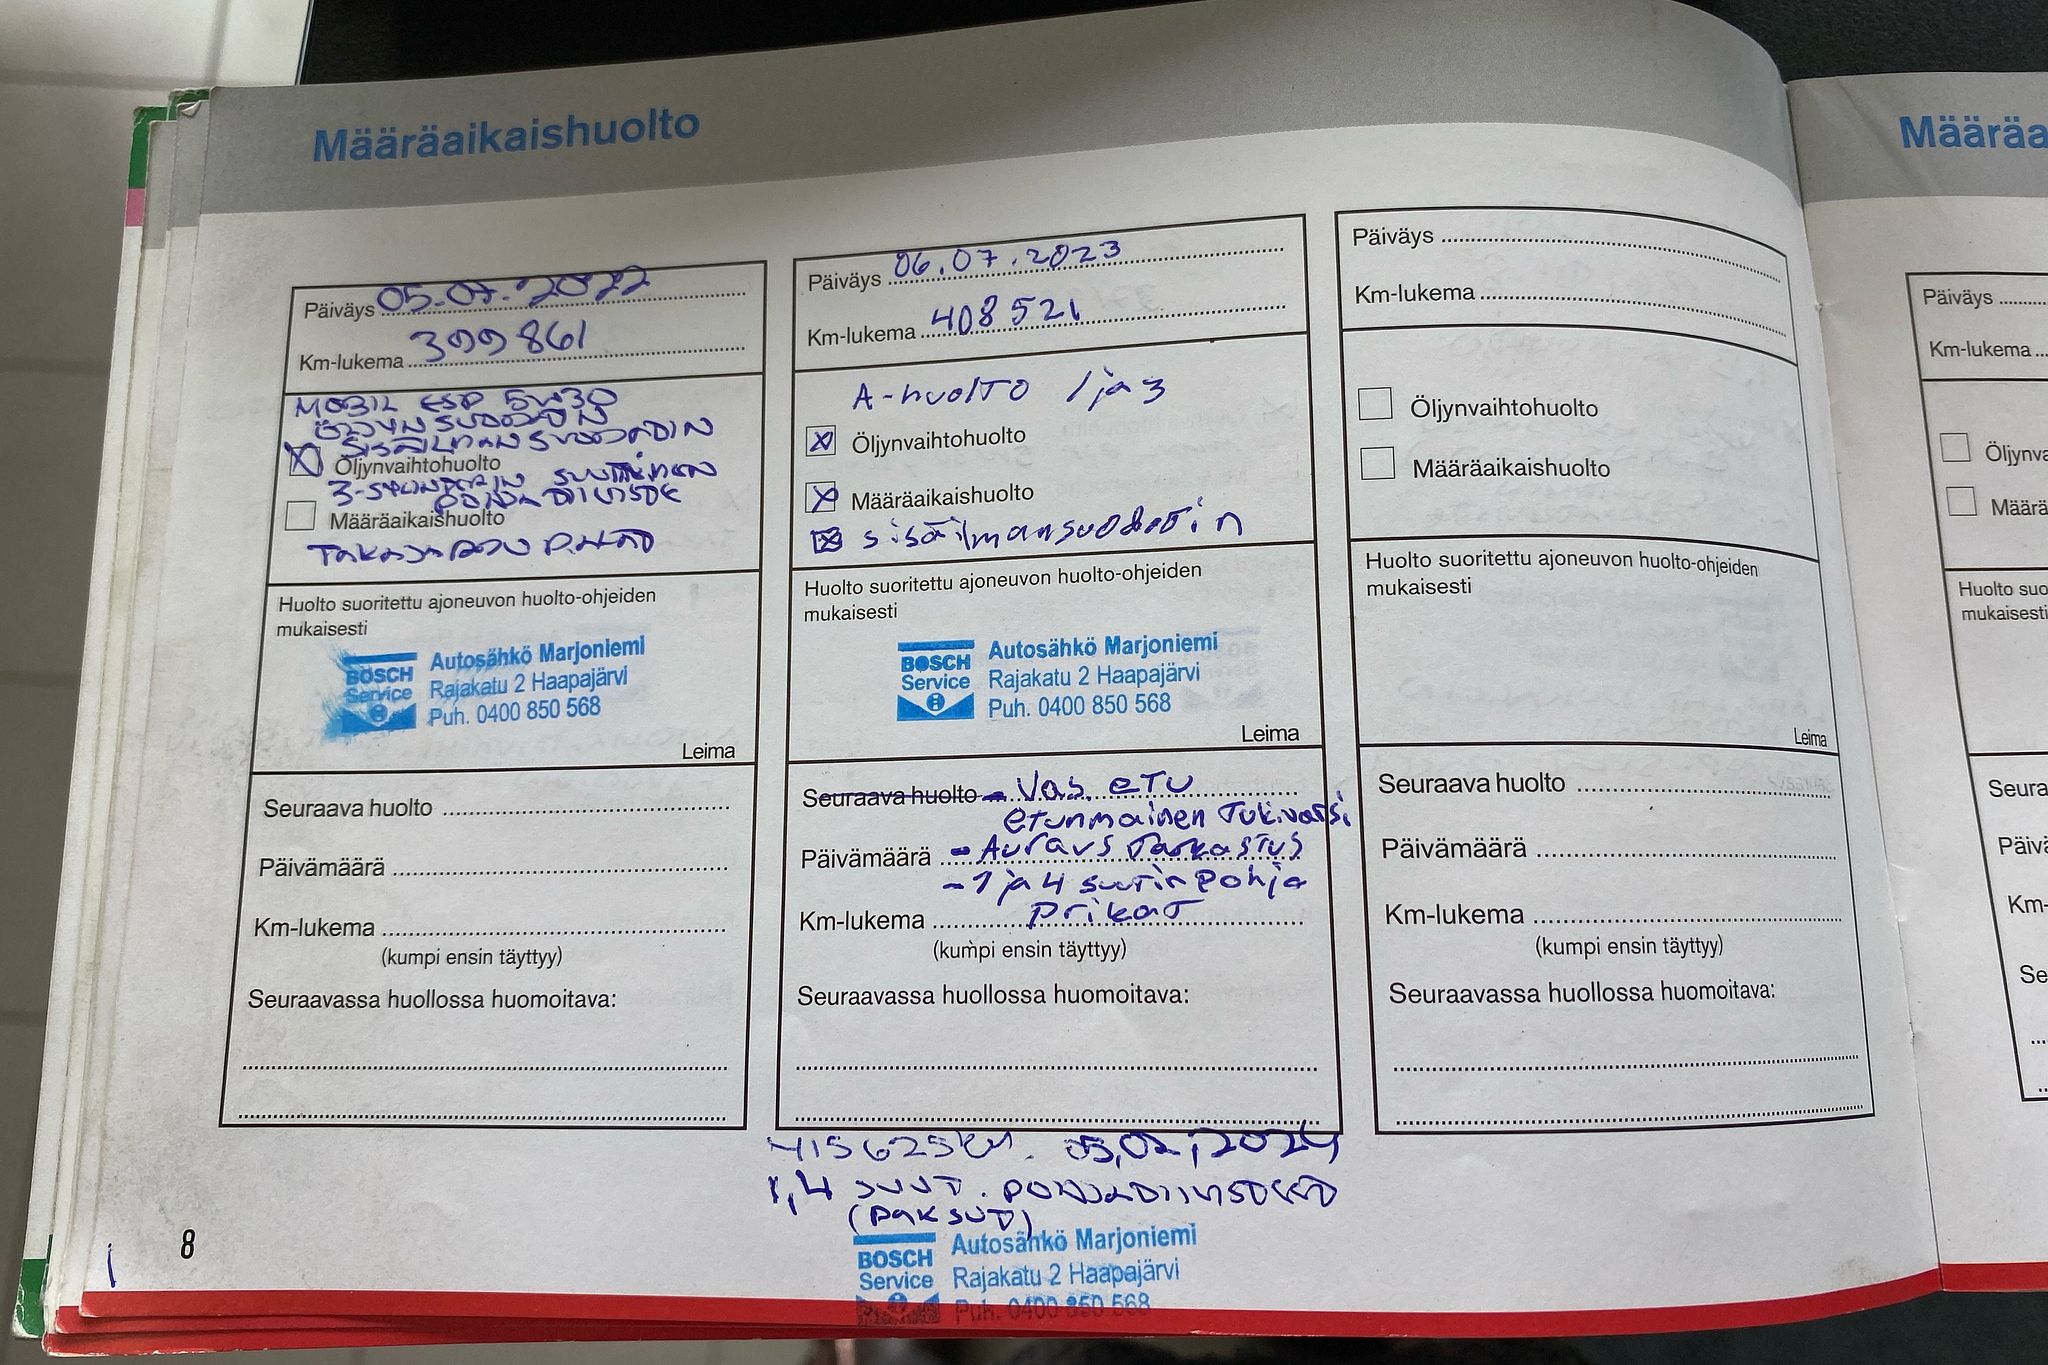 Määräaikaishuolto
Päiväys 05.07.2022
Km-lukema 399861
MOBIL ESP 5W30
ÖLJYNSUODATIN
SISÄILMANSUODATIN
☒ Öljynvaihtohuolto
3-SYLINTERIN SUUTTIMEN
☐ Määräaikaishuolto
Huolto suoritettu ajoneuvon huolto-ohjeiden
mukaisesti
BOSCH
Service
Autosähkö Marjoniemi
Rajakatu 2 Haapajärvi
Puh. 0400 850 568
Leima
Seuraava huolto
Päivämäärä
Km-lukema
(kumpi ensin täyttyy)
Seuraavassa huollossa huomoitava:
Päiväys 06.07.2023
Km-lukema 408521
A-huolto 1 ja 3
☒ Öljynvaihtohuolto
☒ Määräaikaishuolto
☒ sisäilmansuodatin
Huolto suoritettu ajoneuvon huolto-ohjeiden
mukaisesti
BOSCH
Service
Autosähkö Marjoniemi
Rajakatu 2 Haapajärvi
Puh. 0400 850 568
Leima
Seuraava huolto - Vas. eTU
etummainen Tukivarsi
Päivämäärä - Auraus Tarkastus
- 1 ja 4 suutin pohja
Km-lukema prikat
(kumpi ensin täyttyy)
Seuraavassa huollossa huomoitava:
415625km. 05,02,2024
1,4 SUUT. POHJATIIVISTEET
(PAKSUT)
BOSCH
Service
Autosähkö Marjoniemi
Rajakatu 2 Haapajärvi
Puh. 0400 850 568
Päiväys
Km-lukema
☐ Öljynvaihtohuolto
☐ Määräaikaishuolto
Huolto suoritettu ajoneuvon huolto-ohjeiden
mukaisesti
Leima
Seuraava huolto
Päivämäärä
Km-lukema
(kumpi ensin täyttyy)
Seuraavassa huollossa huomoitava:
8
Määräa
Päiväys
Km-lukema
☐ Öljynva
☐ Määrä
Huolto suo
mukaisesti
Seura
Päivä
Km-
Se